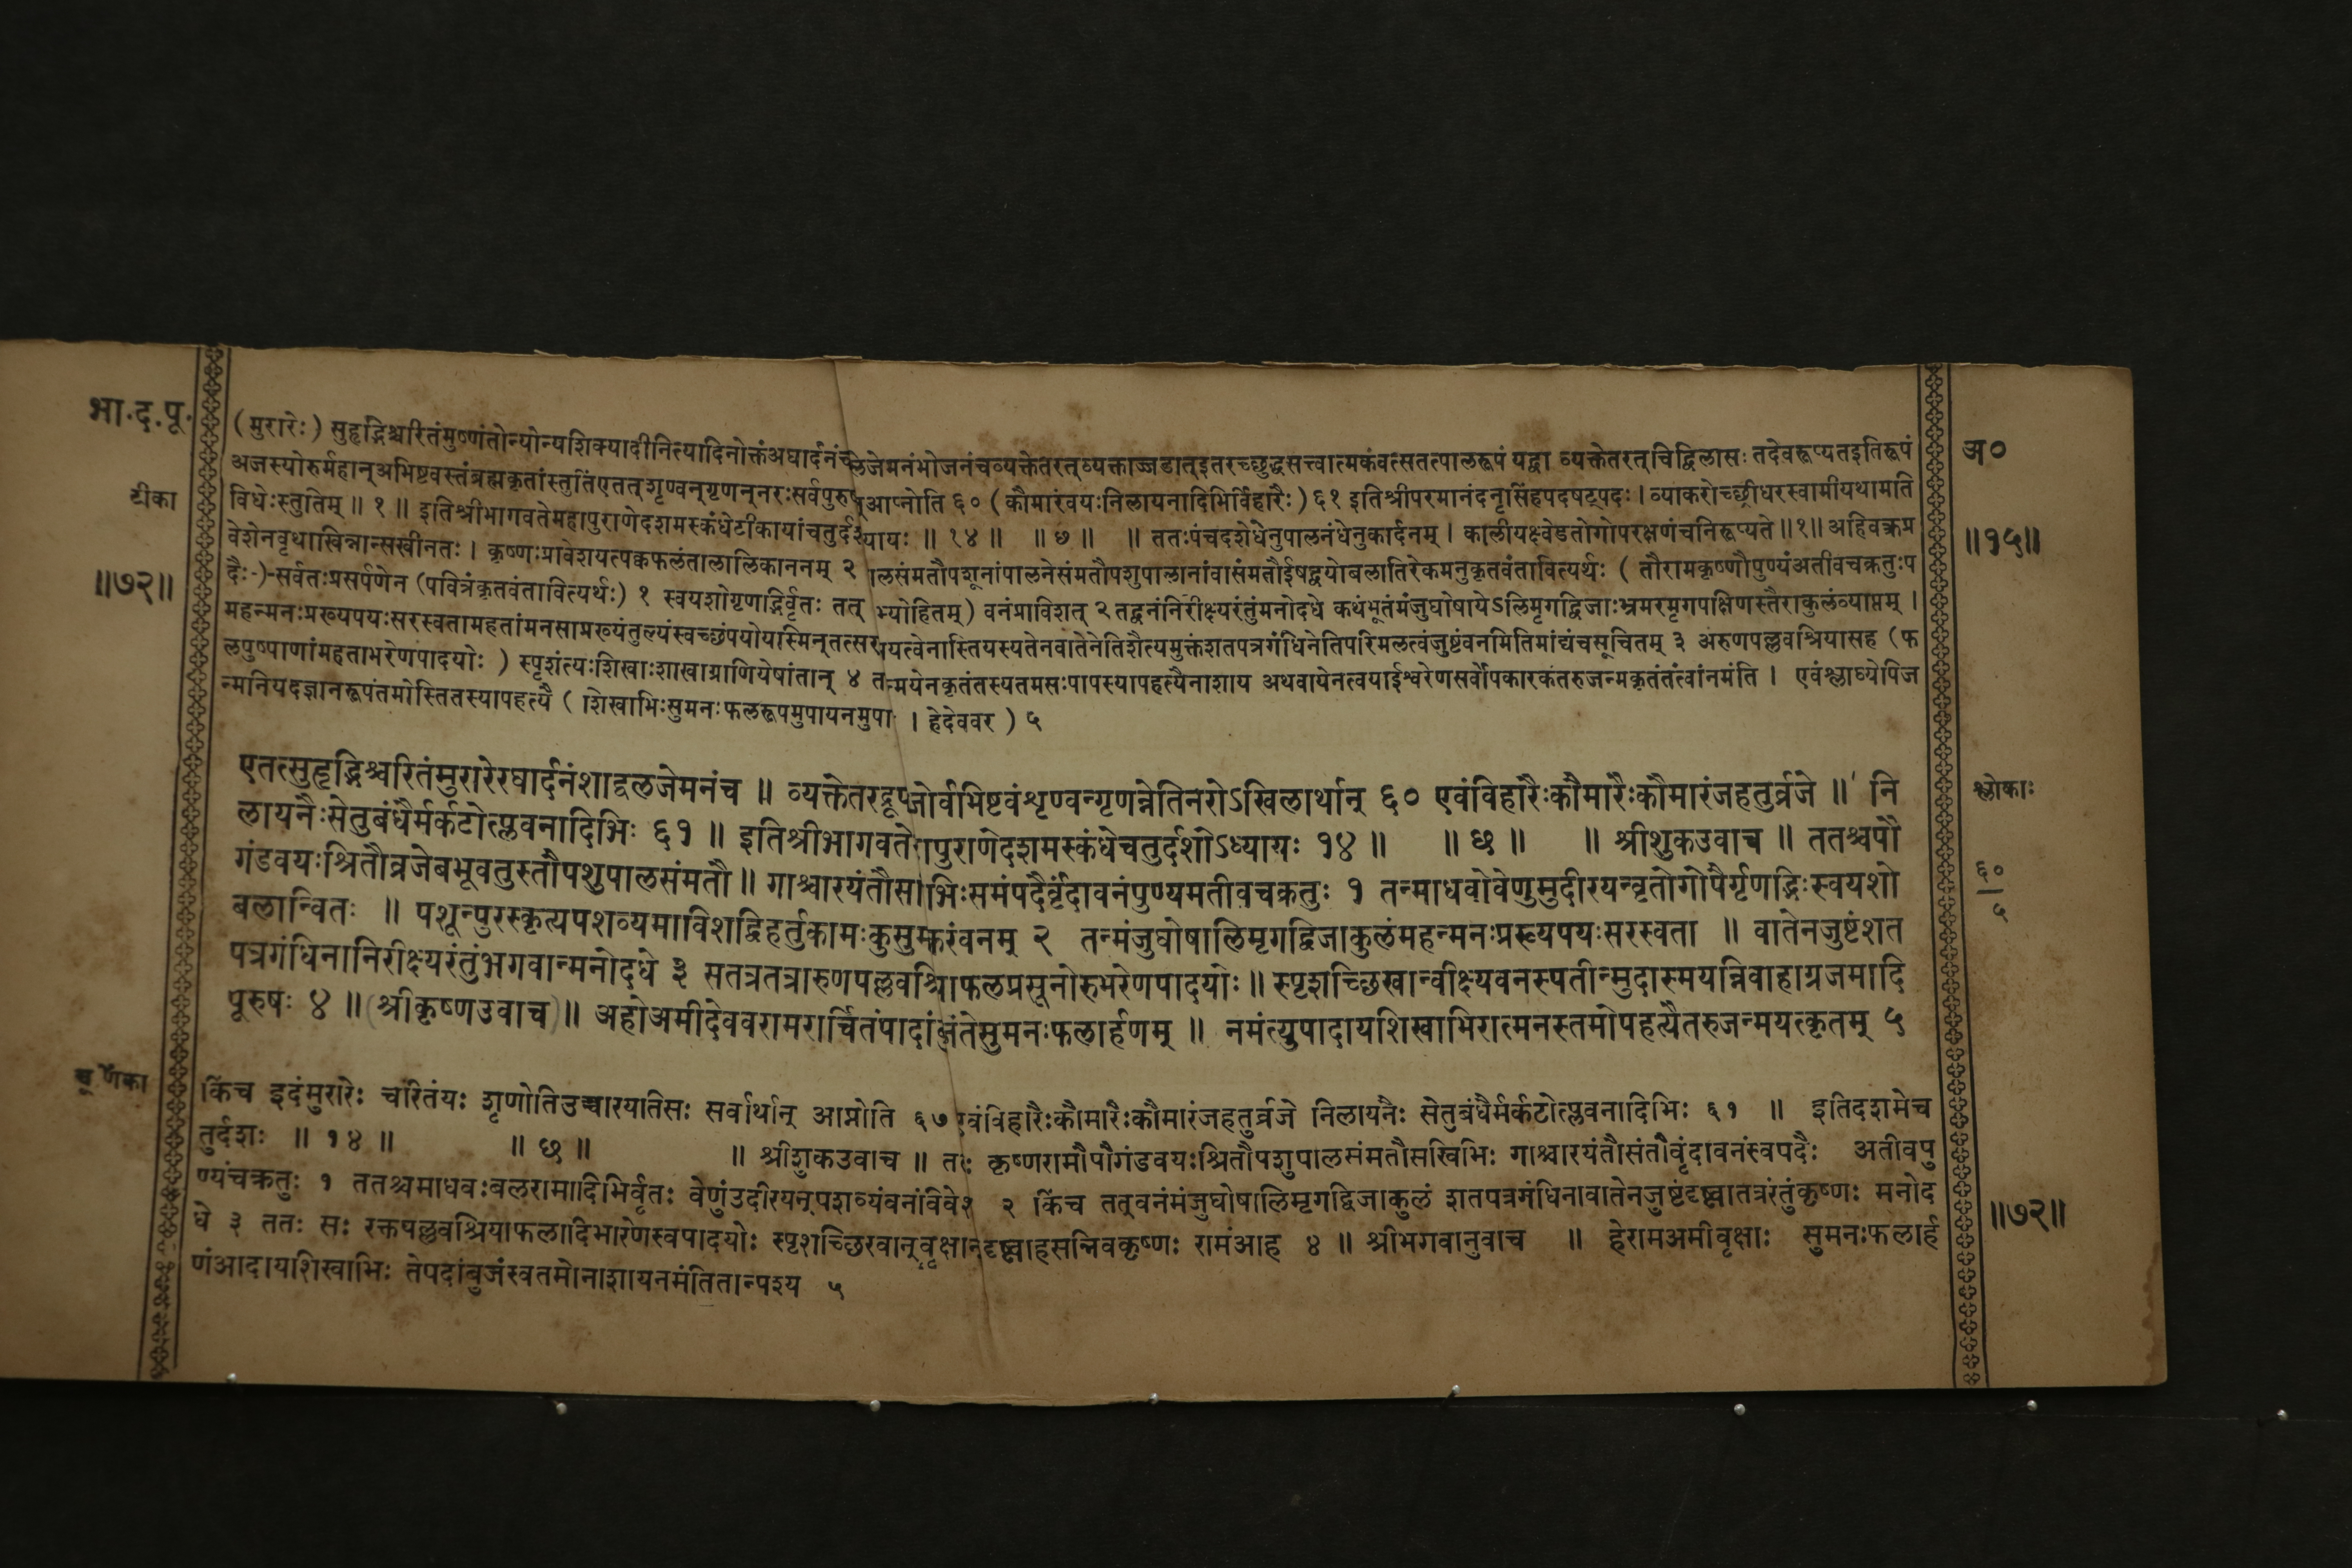 भा.द.पू.
टीका
॥७२॥
(मुरारेः) सुहृद्भिश्चरितंमुष्णंतोन्योन्यशिक्यादीनित्यादिनोक्तंअघार्दनं जेमनंभोजनंचव्यक्तेतरत्व्यक्ताज्जडात्इतरच्छुद्धसत्त्वात्मकंवत्सतत्पालरूपं यद्वा व्यक्तेतरत्चिद्विलासः तदेवरूप्यतइतिरूपं
अजस्योरुर्महान्अभिष्टवस्तंब्रह्मकृतांस्तुतिंएतत्शृण्वन्गृणन्नरःसर्वपुरु आप्नोति ६० (कौमारंवयःनिलायनादिभिर्विहारैः) ६१ इतिश्रीपरमानंदनृसिंहपदषट्पदः। व्याकरोच्छ्रीधरस्वामीयथामति
विधेःस्तुतिम् ॥ १ ॥ इतिश्रीभागवतेमहापुराणेदशमस्कंधेटीकायांचतुर्दश यायः ॥ १४ ॥ ॥ ७ ॥ ॥ ततःपंचदशेधेनुपालनंधेनुकार्दनम्। कालीयक्ष्वेडतोगोपरक्षणंचनिरूप्यते ॥१॥ अहिवक्त्रप्र
वेशेनवृथाखिन्नान्सखीनतः। कृष्णःप्रावेशयत्पक्वफलंतालालिकाननम् २ लसंमतौपशूनांपालनेसंमतौपशुपालानांवासंमतौईषद्वयोबलातिरेकमनुकृतवंतावित्यर्थः ( तौरामकृष्णौपुण्यंअतीवचक्रतुःप
दैः) सर्वतःप्रसर्पणेन (पवित्रंकृतवंतावित्यर्थः) १ स्वयशोगृणद्भिर्वृतः तत् भ्योहितम्) वनंप्राविशत् २ तद्वनंनिरीक्ष्यरंतुंमनोदधे कथंभूतंमंजुघोषायेऽलिमृगद्विजाःभ्रमरमृगपक्षिणस्तैराकुलंव्याप्तम्।
महन्मनःप्रख्यपयःसरस्वतामहतांमनसाप्रख्यंतुल्यंस्वच्छंपयोयस्मिन्तत्सर यत्वेनास्तियस्यतेनवातेनेतिशैत्यमुक्तंशतपत्रगंधिनेतिपरिमलत्वंजुष्टंवनमितिमांद्यंचसूचितम् ३ अरुणपल्लवश्रियासह (फ
लपुष्पाणांमहताभरेणपादयोः ) स्पृशंत्यःशिखाःशाखाग्राणियेषांतान् ४ त न्मयेनकृतंतस्यतमसःपापस्यापहत्यैनाशाय अथवायेनत्वयाईश्वरेणसर्वोपकारकंतरुजन्मकृतंतंत्वांनमंति। एवंश्लाघ्योपिज
न्मनियदज्ञानरूपंतमोस्तितस्यापहत्यै ( शिखाभिःसुमनःफलरूपमुपायनमुपा । हेदेववर ) ५
अ०
॥१५॥
एतत्सुहृद्भिश्चरितंमुरारेरघार्दनंशाद्वलजेमनंच ॥ व्यक्तेतरद्रूप जोर्वभिष्टवंशृण्वन्गृणन्नेतिनरोऽखिलार्थान् ६० एवंविहारैःकौमारैःकौमारंजहतुर्व्रजे ॥ नि
लायनैःसेतुबंधैर्मर्कटोत्प्लवनादिभिः ६१ ॥ इतिश्रीभागवते पुराणेदशमस्कंधेचतुर्दशोऽध्यायः १४ ॥ ॥ छ ॥ ॥ श्रीशुकउवाच ॥ ततश्चपौ
गंडवयःश्रितौव्रजेबभूवतुस्तौपशुपालसंमतौ ॥ गाश्चारयंतौस भिःसमंपदैर्वृंदावनंपुण्यमतीवचक्रतुः १ तन्माधवोवेणुमुदीरयन्वृतोगोपैर्गृणद्भिःस्वयशो
बलान्वितः ॥ पशून्पुरस्कृत्यपशव्यमाविशद्विहर्तुकामःकुसुमाकरंवनम् २ तन्मंजुघोषालिमृगद्विजाकुलंमहन्मनःप्रख्यपयःसरस्वता ॥ वातेनजुष्टंशत
पत्रगंधिनानिरीक्ष्यरंतुंभगवान्मनोदधे ३ सतत्रतत्रारुणपल्लवश्रियाफलप्रसूनोरुभरेणपादयोः ॥ स्पृशच्छिखान्वीक्ष्यवनस्पतीन्मुदास्मयन्निवाहाग्रजमादि
पूरुषः ४ ॥ (श्रीकृष्णउवाच) ॥ अहोअमीदेववरामरार्चितंपादां जंतेसुमनःफलार्हणम् ॥ नमंत्युपादायशिखाभिरात्मनस्तमोपहत्यैतरुजन्मयत्कृतम् ५
श्लोकाः
६०
५
चूर्णिका
किंच इदंमुरारेः चरितंयः शृणोतिउच्चारयतिसः सर्वार्थान् आप्नोति ६७ एवंविहारैःकौमारैःकौमारंजहतुर्व्रजे निलायनैः सेतुबंधैर्मर्कटोत्प्लवनादिभिः ६१ ॥ इतिदशमेच
तुर्दशः ॥ १४ ॥ ॥ छ ॥ ॥ श्रीशुकउवाच ॥ तः कृष्णरामौपौगंडवयःश्रितौपशुपालसंमतौसखिभिः गाश्चारयंतौसंतौवृंदावनंस्वपदैः अतीवपु
ण्यंचक्रतुः १ ततश्चमाधवःबलरामादिभिर्वृतः वेणुंउदीरयन्पशव्यंवनंविवेश २ किंच तत्वनंमंजुघोषालिमृगद्विजाकुलं शतपत्रगंधिनावातेनजुष्टंदृष्ट्वातत्ररंतुंकृष्णः मनोद
धे ३ ततः सः रक्तपल्लवश्रियाफलादिभारेणस्वपादयोः स्पृशच्छिखान्वृक्षान्दृष्ट्वाहसन्निवकृष्णः रामंआह ४ ॥ श्रीभगवानुवाच ॥ हेरामअमीवृक्षाः सुमनःफलार्ह
णंआदायशिखाभिः तेपदांबुजंस्वतमोनाशायनमंतितान्पश्य ५
॥७२॥